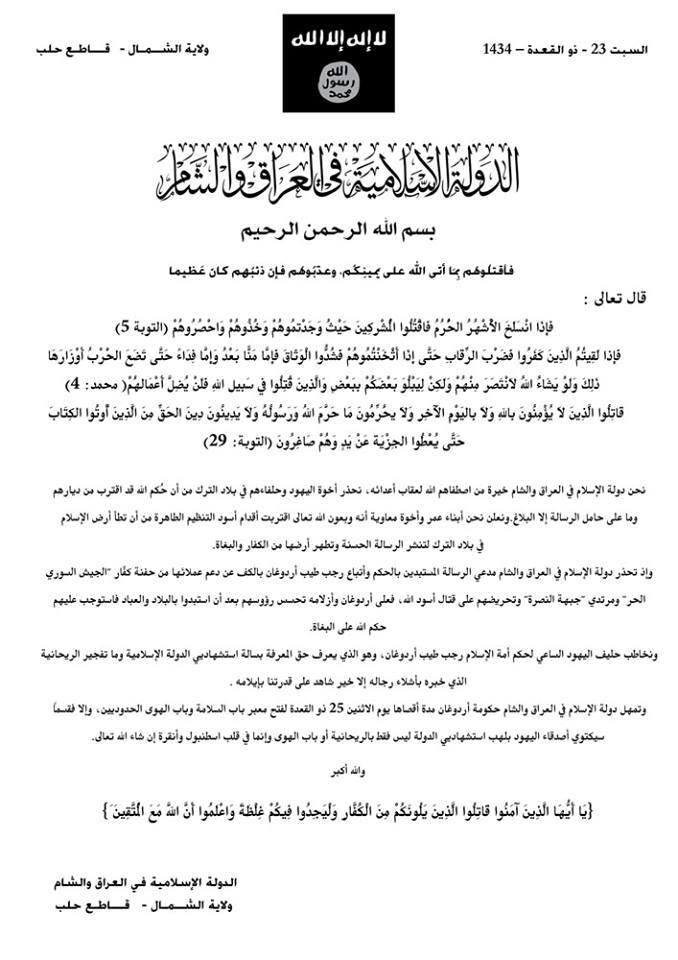 السبت 23 - ذو القعدة – 1434
لا إله إلا الله
ولاية الشـــمـال - قـــاطـع حلب
الله
رسول
محمد
الدولة الإسلامية في العراق والشام
بسم الله الرحمن الرحيم
فأقتلوهُم بِمَا أتى الله على يمينِكُم، وعذّبوهُم فإن ذنبُهم كان عَظيما
قال تعالى :
فَإِذَا انْسَلَخَ الأَشْهُرُ الحُرُمُ فَاقْتُلُوا المُشْرِكِينَ حَيْثُ وَجَدْتمُوهُمْ وَخُذُوهُمْ وَاحْصُرُوهُمْ (التوبة 5)
فَإِذا لَقِيتُمُ الَّذِينَ كَفَرُوا فَضَرْبَ الرِّقابِ حَتَّى إِذا أَثْخَنْتُمُوهُمْ فَشُدُّوا الْوَثاقَ فَإِمَّا مَنًّا بَعْدُ وَإِمَّا فِداءً حَتَّى تَضَعَ الحْرْبُ أَوْزارَهَا
ذلِكَ وَلَوْ يَشَاءُ اللهُ لَانْتَصَرَ مِنْهُمْ وَلكِنْ لِيَبْلُوَ بَعْضَكُمْ بِبَعْضٍ وَالَّذِينَ قُتِلُوا فِي سَبِيلِ اللهِ فَلَنْ يُضِلَّ أَعْمَالَهُمْ( محمد: 4)
قاتِلُوا الَّذِينَ لَا يُؤْمِنُونَ بِاللهِ وَلَا بِاليَوْمِ الآخِرِ وَلَا يحُرِّمُونَ مَا حَرَّمَ اللهُ وَرَسُولُهُ وَلَا يَدِينُونَ دِينَ الحَقِّ مِنَ الَّذِينَ أُوتُوا الكِتَابَ
حَتَّى يُعْطُوا الجزْيَةَ عَنْ يَدٍ وَهُمْ صَاغِرُونَ (التوبة: 29)
نحن دولة الإسلام في العراق والشام خيرة من اصطفاهم الله لعقاب أعدائه، نحذر أخوة اليهود وحلفاءهم في بلاد الترك من أن حُكم الله قد اقترب من ديارهم
وما على حامل الرسالة إلا البلاغ.ونعلن نحن أبناء عمر وأخوة معاوية أنه وبعون الله تعالى اقتربت أقدام أسود التنظيم الطاهرة من أن تطأ أرض الإسلام
في بلاد الترك لتنشر الرسالة الحسنة وتطهر أرضها من الكفار والبغاة.
وإذ تحذر دولة الإسلام في العراق والشام مدعي الرسالة المستبدين بالحكم وأتباع رجب طيب أردوغان بالكف عن دعم عملائها من حفنة كفّار "الجيش السوري
الحر" ومرتدي "جبهة النصرة" وتحريضهم على قتال أسود الله، فعلى أردوغان وأزلامه تحسس رؤوسهم بعد أن استبدوا بالبلاد والعباد فاستوجب عليهم
حكم الله على البغاة.
ونخاطب حليف اليهود الساعي لحكم أمة الإسلام رجب طيب أردوغان، وهو الذي يعرف حق المعرفة بسالة استشهاديي الدولة الإسلامية وما تفجير الريحانية
الذي خبره بأشلاء رجاله إلا خير شاهد على قدرتنا بإيلامه .
وتمهل دولة الإسلام في العراق والشام حكومة أردوغان مدة أقصاها يوم الاثنين 25 ذو القعدة لفتح معبر باب السلامة وباب الهوى الحدوديين، وإلا فقسماً
سيكتوي أصدقاء اليهود بلهب استشهاديي الدولة ليس فقط بالريحانية أو باب الهوى وإنما في قلب اسطنبول وأنقرة إن شاء الله تعالى.
والله أكبر
{يَا أَيُّهَا الَّذِينَ آمَنُوا قَاتِلُوا الَّذِينَ يَلُونَكُمْ مِنَ الْكُفَّارِ وَلْيَجِدُوا فِيكُمْ غِلْظَةً وَاعْلَمُوا أَنَّ اللهَّ مَعَ المُتَّقِينَ}
الدولة الإسلامية في العراق والشام
ولاية الشـــمـال - قـــاطـع حلب